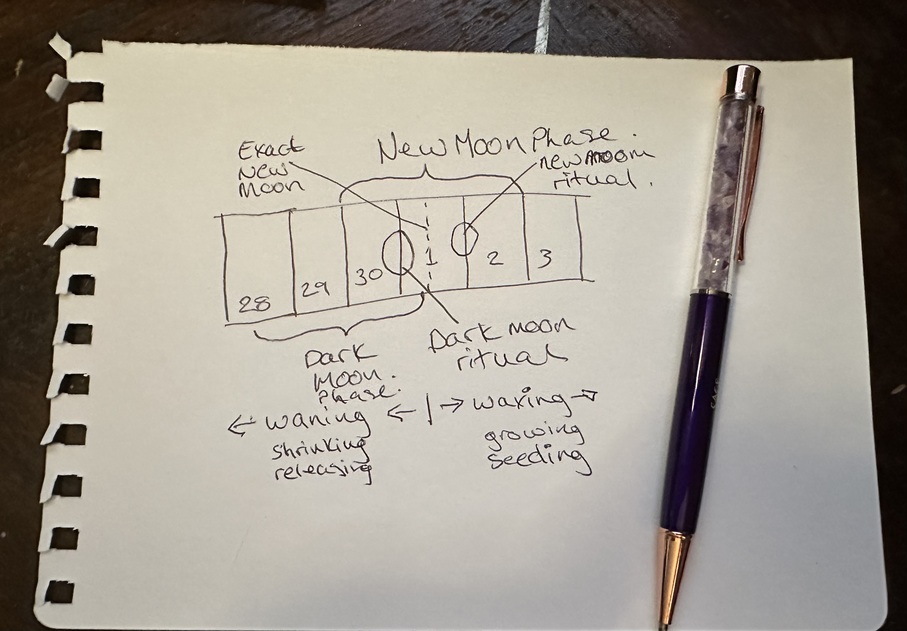 Exact
New
Moon
New Moon Phase.
new moon
ritual.
28
29
30
1
2
3
Dark
Moon.
Phase.
Dark moon
ritual
← waning ← | → waxing →
shrinking
releasing
growing
seeding